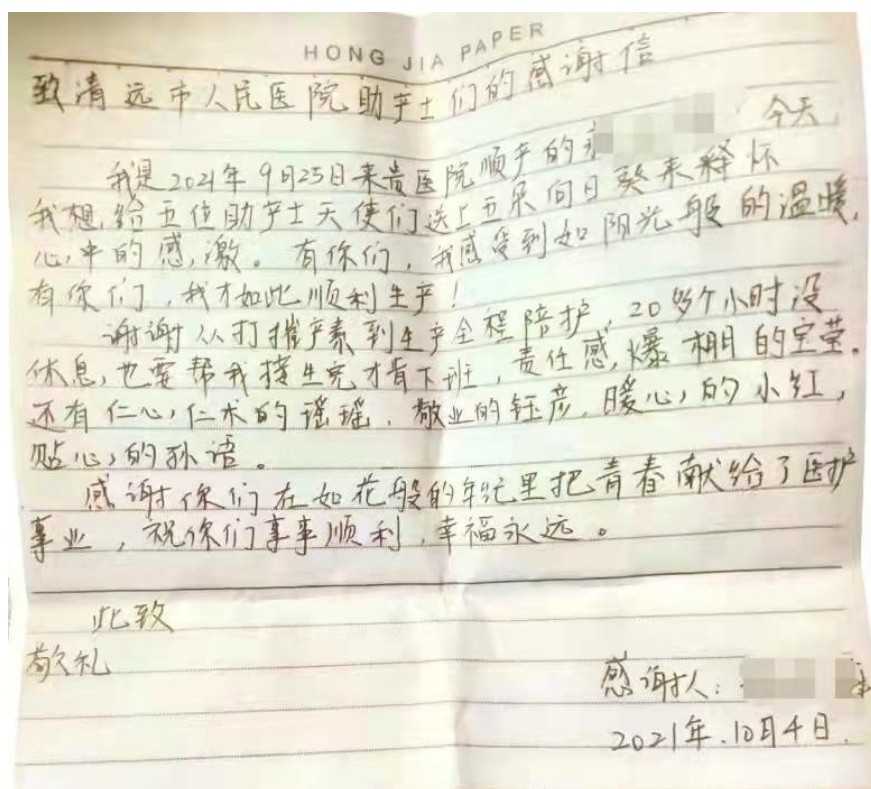 HONG JIA PAPER
致清远市人民医院助产士们的感谢信
我是2021年9月25日来贵医院顺产的 今天
我想,给五位助产士天使们送上五朵向日葵来释怀
心中的感激。有你们,我感受到如阳光般的温暖,
有你们,我才如此顺利生产!
谢谢从打催产素到生产全程陪护,20多个小时没
休息,也要帮我接生完才肯下班,责任感爆棚的宝莹。
还有仁心仁术的瑶瑶,敬业的钰彦,暖心的小红,
贴心的孙语。
感谢你们在如花般的年纪里把青春献给了医护
事业,祝你们事事顺利,幸福永远。
此致
敬礼
感谢人:
2021年.10月4日.